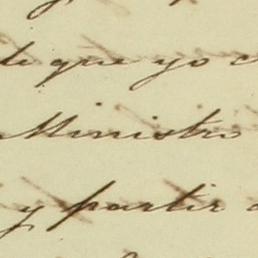 de que yo
Ministro
y partir